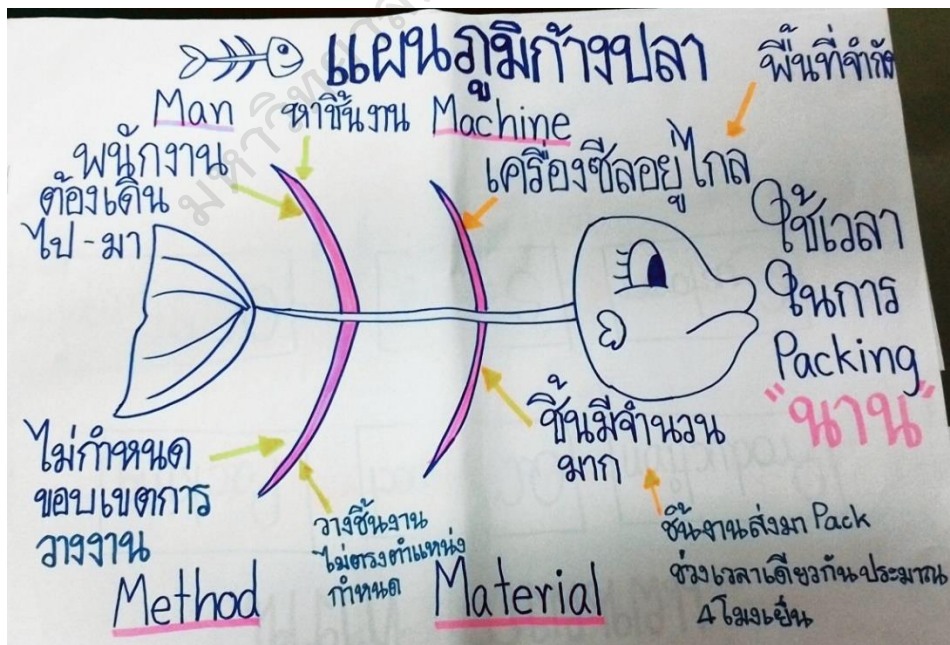 แผนภูมิก้างปลา
Man
หาชิ้นงาน
Machine
พื้นที่จำกัด
พนักงาน
ต้องเดิน
ไป - มา
เครื่องซีลอยู่ไกล
ใช้เวลา
ในการ
Packing
"นาน"
ไม่กำหนด
ขอบเขตการ
วางงาน
วางชิ้นงาน
ไม่ตรงตำแหน่ง
กำหนด
ชิ้นมีจำนวน
มาก
ชิ้นงานส่งมา Pack
ช่วงเวลาเดียวกันประมาณ
4 โมงเย็น
Method
Material